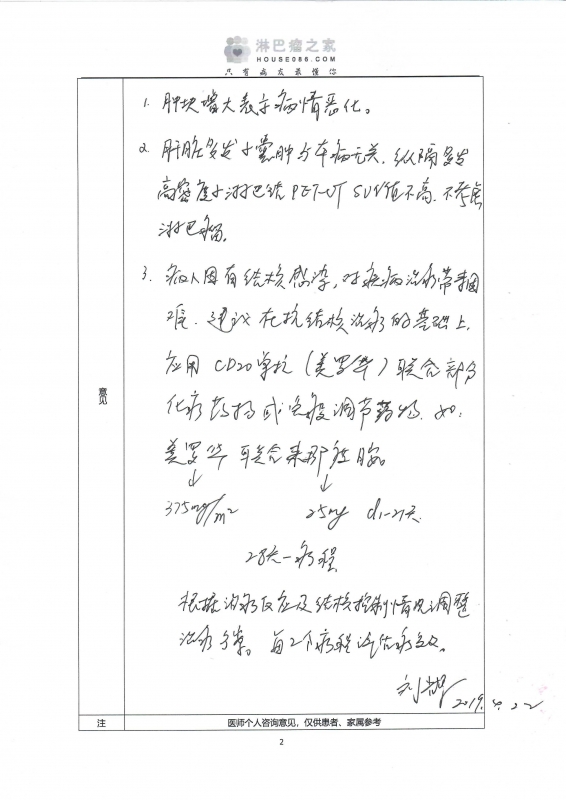 淋巴瘤之家
HOUSE086.COM
只有病友最懂您
意见
1. 肿块增大表示病情恶化。
2. 肝脏多发小囊肿与本病无关,纵隔多发
高密度小淋巴结PET-CT SUV值不高,不考虑
淋巴瘤。
3. 病人因有结核感染,对疾病治疗带来困
难,建议在抗结核治疗的基础上,
应用CD20单抗(美罗华)联合部分
化疗药物或免疫调节药物,如:
美罗华联合来那度胺。
↓ ↓
375mg/m² 25mg d1-21天
28天一疗程
根据治疗反应及结核控制情况调整
治疗方案。每2个疗程评估疗效。
2019.4.22
注 医师个人咨询意见,仅供患者、家属参考
2